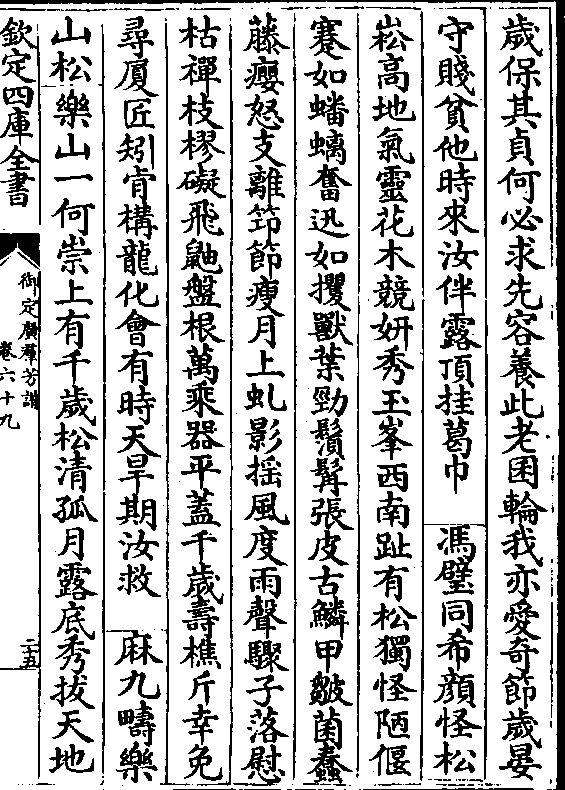 歲保其貞何必求先容養此老困輪我亦愛奇節歲晏
守賤貧他時來汝伴露頂挂葛巾　馮璧同希顔怪松
崧高地氣靈花木競妍秀玉峯西南趾有松獨怪陋偃
蹇如蟠螭奮迅如攫獸葉勁鬚髯張皮古鱗甲皺菌蠢
藤癭怒支離笻節瘦月上虬影揺風度雨聲驟子落慰
枯禪枝樛礙飛鼬盤根萬乘器平蓋千歲壽樵斤幸免
尋厦匠矧肯構龍化會有時天旱期汝救　麻九疇樂
山松樂山一何崇上有千歲松清孤月露底秀拔天地
欽定四庫全書
御定廣羣芳譜
卷六十九
二十五